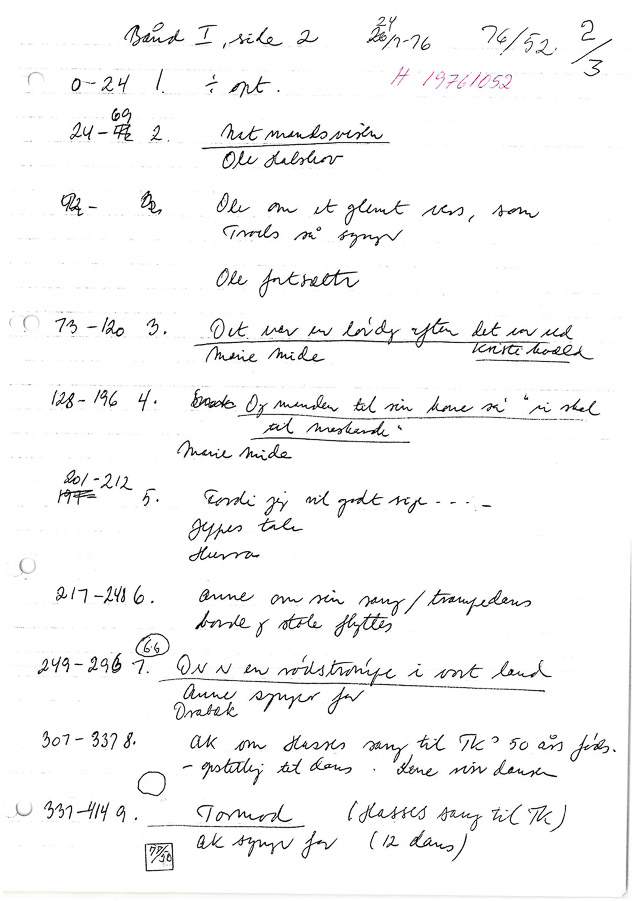 Bånd I, side 2 24/7-76 76/52 2/3
H 19761052
0-24 1. ÷ opt.
24-69 2. Natmandsvisen
Ole Halskov
Ole om et glemt vers, som
Troels så synger
Ole fortsætter
73-120 3. Det var en lørdag aften det var ved
Marie Mide Kristi
128-196 4. Og manden til sin kone sa "vi skal
til
Marie Mide
201-212
5. Fordi jeg vil godt sige - - - - -
Jyppes tale
Hurra
217-248 6. Anne om sin sang / trampedans
borde og stole flyttes
66
249-296 7. Der er en rødstrømpe i vort land
Anne synger for
Drabæk
307-337 8. AK om Hasses sang til TK's 50 års føds.
- opstilling til dans. Lene viser dansen
337-414 9. Tormod (Hasses sang til TK)
AK synger for (12 dans)
77/50